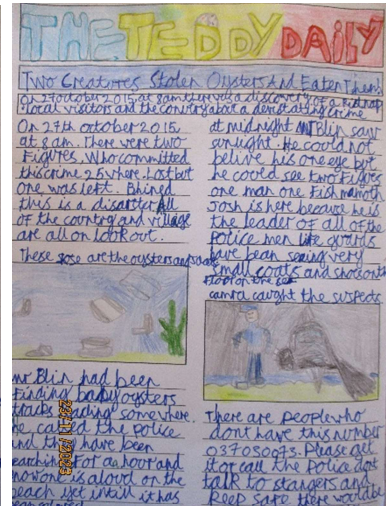 THE TEDDY DAILY
Two Creatures Stolen Oysters And Eaten Them
On 27 october 2015 at 8am there was a discovery of a kidnap
local visitor and the convery about a devastating crime
On 27th october 2015
at 8am. There were two
Figures. Who committed
this crime 25 where. Lost but
one was left. Bhined
this is a disarter All
of the country and village
are all on look out.
These are the oysters and
mr Blin had been
Finding baby oysters
tracks leading somewhere.
he called the police
and they have been
earching For a hour and
nowone is aloud on the
beach yet intill it has
23/11/2023
at midnight Mr Blin saw
a nught. He could not
belive his one eye but
he could see two Figues
one man one Fish mamoth
Josh is here because he is
the leader of all of the
Police men like guards
have bean seeing very
small coats and shoes on th
floor on the
camra caught the suspects
There are people who
dont have this number
037050093. Please get
it or call the Police dont
talk to stangers and
keep safe there would be